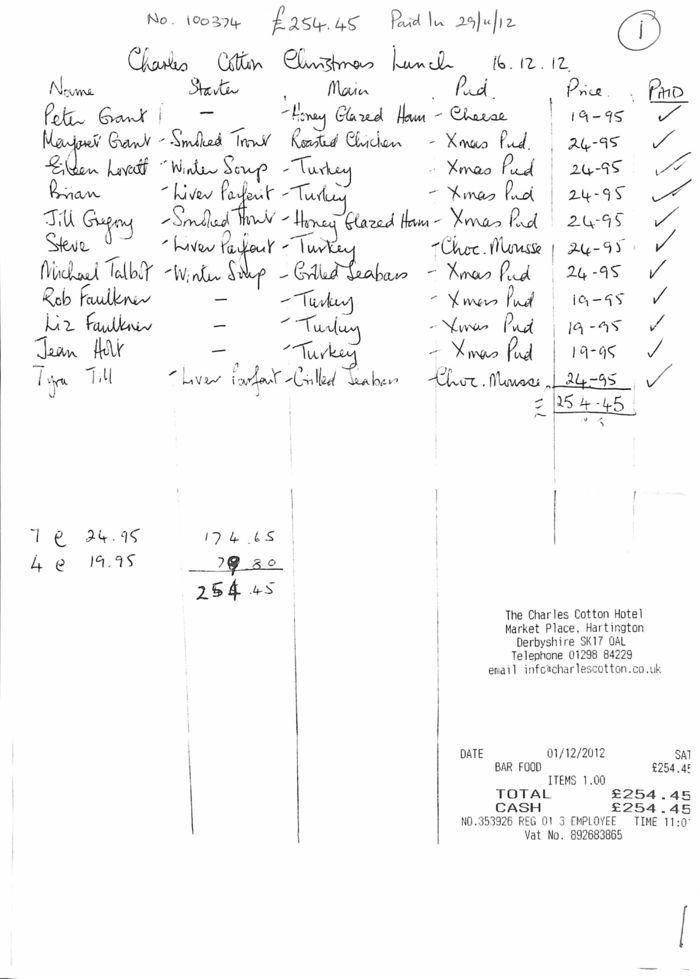 No. 100374 £254.45 Paid In 29/11/12
1
Charles Cotton Christmas Lunch 16.12.12
Name Starter Main Pud. Price. PAID
Peter Grant — - Honey Glazed Ham - Cheese 19-95 ✓
Margaret Grant - Smoked Trout Roasted Chicken - Xmas Pud. 24-95 ✓
Eileen Lovatt - Winter Soup - Turkey - Xmas Pud 24-95 ✓
Brian - Liver Parfait - Turkey - Xmas Pud 24-95 ✓
Jill Gregory - Smoked Trout - Honey Glazed Ham - Xmas Pud 24-95 ✓
Steve - Liver Parfait - Turkey - Choc. Mousse 24-95 ✓
Michael Talbot - Winter Soup - Grilled Seabass - Xmas Pud 24-95 ✓
Rob Faulkner — - Turkey - Xmas Pud 19-95 ✓
Liz Faulkner — - Turkey - Xmas Pud 19-95 ✓
Jean Holt — - Turkey - Xmas Pud 19-95 ✓
Till - Liver Parfait - Grilled Seabass - Choc. Mousse 24-95 ✓
254.45
7 @ 24.95 174.65
4 @ 19.95 79.80
254.45
The Charles Cotton Hotel
Market Place, Hartington
Derbyshire SK17 0AL
Telephone 01298 84229
email info@charlescotton.co.uk
DATE 01/12/2012 SAT
BAR FOOD £254.45
ITEMS 1.00
TOTAL £254.45
CASH £254.45
NO.353926 REG 01 3 EMPLOYEE TIME 11:0
Vat No. 892683865